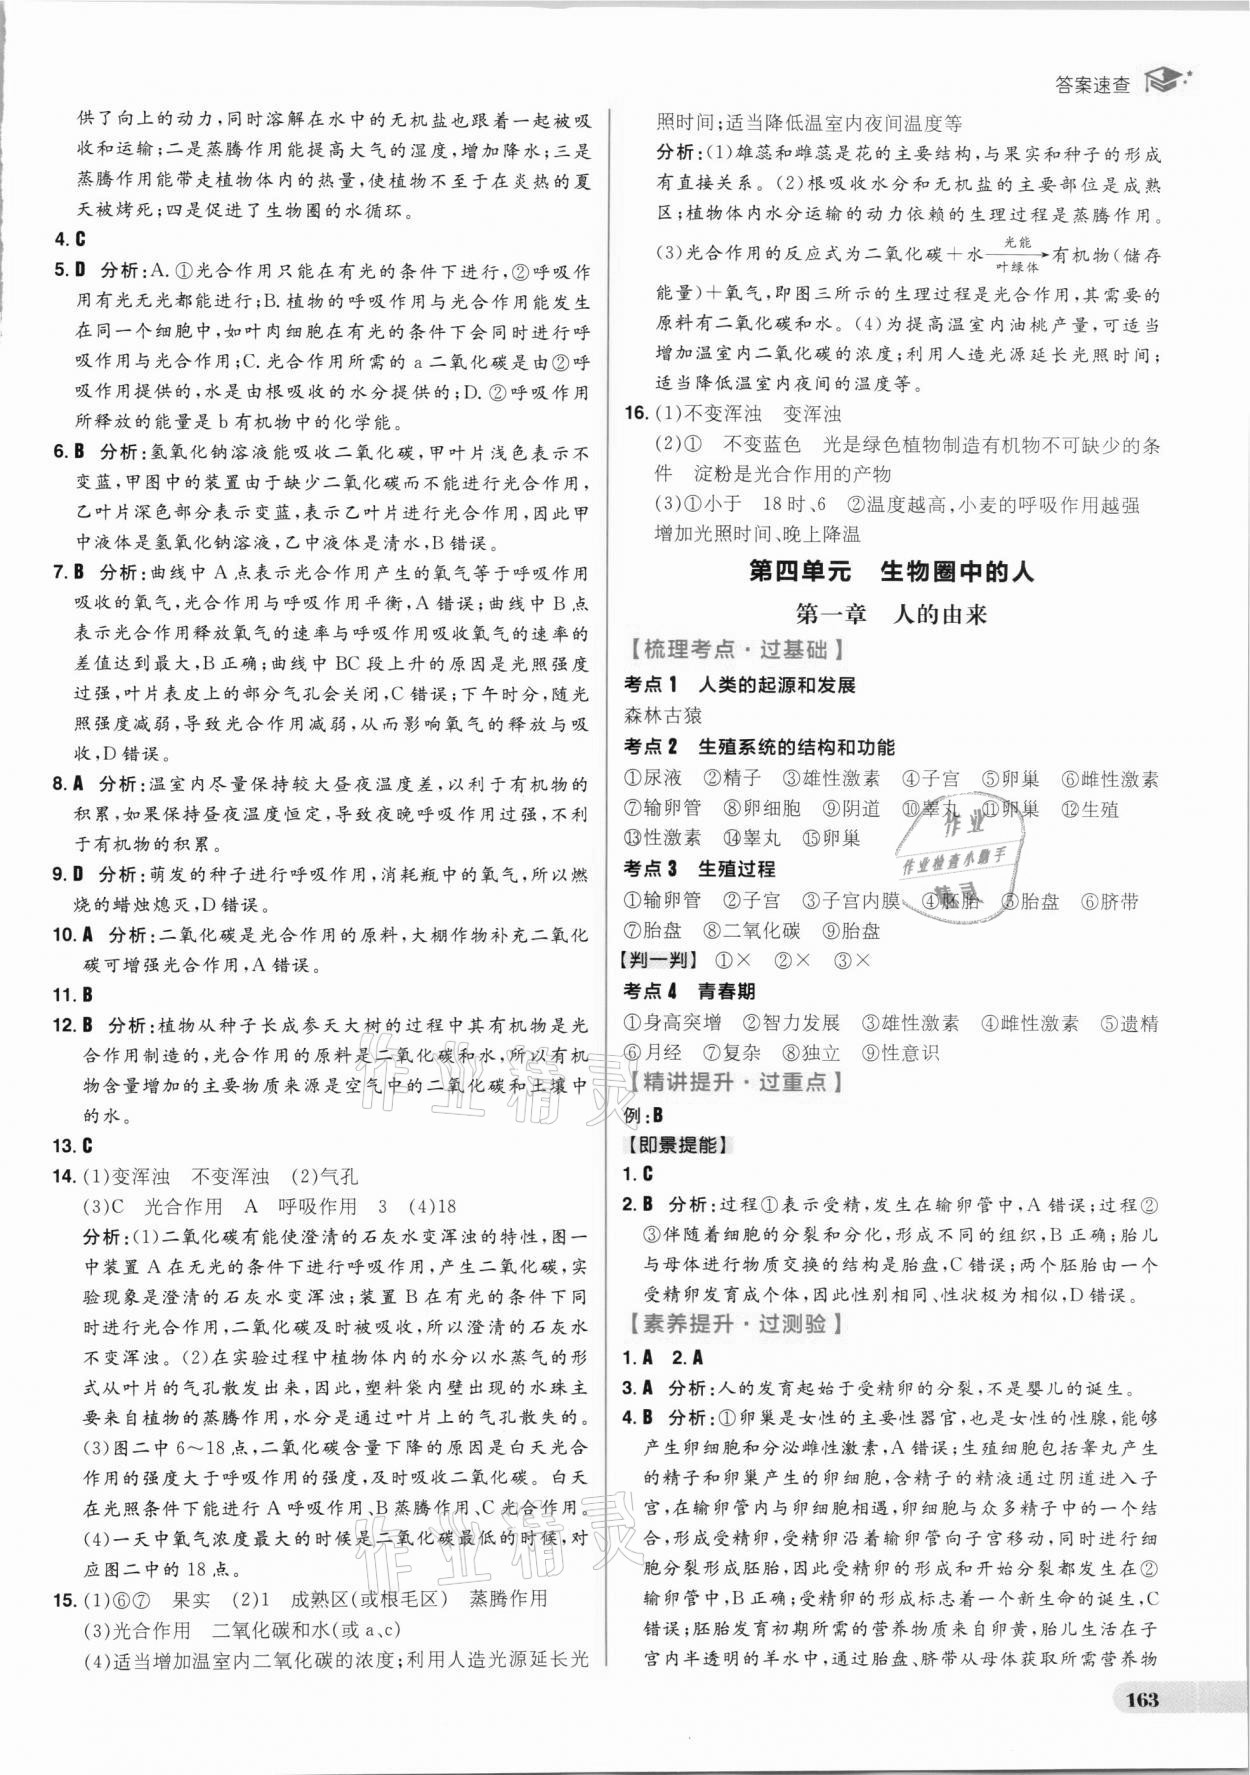 答案速查
供了向上的动力,同时溶解在水中的无机盐也跟着一起被吸
收和运输;二是蒸腾作用能提高大气的湿度,增加降水;三是
蒸腾作用能带走植物体内的热量,使植物不至于在炎热的夏
天被烤死;四是促进了生物圈的水循环。
4. C
5. D 分析:A. ①光合作用只能在有光的条件下进行,②呼吸作
用有光无光都能进行;B. 植物的呼吸作用与光合作用能发生
在同一个细胞中,如叶肉细胞在有光的条件下会同时进行呼
吸作用与光合作用;C. 光合作用所需的 a 二氧化碳是由②呼
吸作用提供的,水是由根吸收的水分提供的;D. ②呼吸作用
所释放的能量是 b 有机物中的化学能。
6. B 分析:氢氧化钠溶液能吸收二氧化碳,甲叶片浅色表示不
变蓝,甲图中的装置由于缺少二氧化碳而不能进行光合作用,
乙叶片深色部分表示变蓝,表示乙叶片进行光合作用,因此甲
中液体是氢氧化钠溶液,乙中液体是清水,B 错误。
7. B 分析:曲线中 A 点表示光合作用产生的氧气等于呼吸作用
吸收的氧气,光合作用与呼吸作用平衡,A 错误;曲线中 B 点
表示光合作用释放氧气的速率与呼吸作用吸收氧气的速率的
差值达到最大,B 正确;曲线中 BC 段上升的原因是光照强度
过强,叶片表皮上的部分气孔会关闭,C 错误;下午时分,随光
照强度减弱,导致光合作用减弱,从而影响氧气的释放与吸
收,D 错误。
8. A 分析:温室内尽量保持较大昼夜温度差,以利于有机物的
积累,如果保持昼夜温度恒定,导致夜晚呼吸作用过强,不利
于有机物的积累。
9. D 分析:萌发的种子进行呼吸作用,消耗瓶中的氧气,所以燃
烧的蜡烛熄灭,D 错误。
10. A 分析:二氧化碳是光合作用的原料,大棚作物补充二氧化
碳可增强光合作用,A 错误。
11. B
12. B 分析:植物从种子长成参天大树的过程中其有机物是光
合作用制造的,光合作用的原料是二氧化碳和水,所以有机
物含量增加的主要物质来源是空气中的二氧化碳和土壤中
的水。
13. C
14. (1)变浑浊 不变浑浊 (2)气孔
(3)C 光合作用 A 呼吸作用 3 (4)18
分析:(1)二氧化碳有能使澄清的石灰水变浑浊的特性,图一
中装置 A 在无光的条件下进行呼吸作用,产生二氧化碳,实
验现象是澄清的石灰水变浑浊;装置 B 在有光的条件下同
时进行光合作用,二氧化碳及时被吸收,所以澄清的石灰水
不变浑浊。(2)在实验过程中植物体内的水分以水蒸气的形
式从叶片的气孔散发出来,因此,塑料袋内壁出现的水珠主
要来自植物的蒸腾作用,水分是通过叶片上的气孔散失的。
(3)图二中 6～18 点,二氧化碳含量下降的原因是白天光合
作用的强度大于呼吸作用的强度,及时吸收二氧化碳。白天
在光照条件下能进行 A 呼吸作用、B 蒸腾作用、C 光合作用。
(4)一天中氧气浓度最大的时候是二氧化碳最低的时候,对
应图二中的 18 点。
15. (1)⑥⑦ 果实 (2)1 成熟区(或根毛区) 蒸腾作用
(3)光合作用 二氧化碳和水(或 a、c)
(4)适当增加温室内二氧化碳的浓度;利用人造光源延长光
照时间;适当降低温室内夜间温度等
分析:(1)雄蕊和雌蕊是花的主要结构,与果实和种子的形成
有直接关系。(2)根吸收水分和无机盐的主要部位是成熟
区;植物体内水分运输的动力依赖的生理过程是蒸腾作用。
(3)光合作用的反应式为二氧化碳＋水 光能 叶绿体 → 有机物(储存
能量)＋氧气,即图三所示的生理过程是光合作用,其需要的
原料有二氧化碳和水。(4)为提高温室内油桃产量,可适当
增加温室内二氧化碳的浓度;利用人造光源延长光照时间;
适当降低温室内夜间的温度等。
16. (1)不变浑浊 变浑浊
(2)① 不变蓝色 光是绿色植物制造有机物不可缺少的条
件 淀粉是光合作用的产物
(3)①小于 18 时、6 ②温度越高,小麦的呼吸作用越强
增加光照时间、晚上降温
第四单元 生物圈中的人
第一章 人的由来
【梳理考点·过基础】
考点 1 人类的起源和发展
森林古猿
考点 2 生殖系统的结构和功能
①尿液 ②精子 ③雄性激素 ④子宫 ⑤卵巢 ⑥雌性激素
⑦输卵管 ⑧卵细胞 ⑨阴道 ⑩睾丸 ⑪卵巢 ⑫生殖
⑬性激素 ⑭睾丸 ⑮卵巢
考点 3 生殖过程
①输卵管 ②子宫 ③子宫内膜 ④胚胎 ⑤胎盘 ⑥脐带
⑦胎盘 ⑧二氧化碳 ⑨胎盘
【判一判】 ①× ②× ③×
考点 4 青春期
①身高突增 ②智力发展 ③雄性激素 ④雌性激素 ⑤遗精
⑥月经 ⑦复杂 ⑧独立 ⑨性意识
【精讲提升·过重点】
例:B
【即景提能】
1. C
2. B 分析:过程①表示受精,发生在输卵管中,A 错误;过程②
③伴随着细胞的分裂和分化,形成不同的组织,B 正确;胎儿
与母体进行物质交换的结构是胎盘,C 错误;两个胚胎由一个
受精卵发育成个体,因此性别相同、性状极为相似,D 错误。
【素养提升·过测验】
1. A 2. A
3. A 分析:人的发育起始于受精卵的分裂,不是婴儿的诞生。
4. B 分析:①卵巢是女性的主要性器官,也是女性的性腺,能够
产生卵细胞和分泌雌性激素,A 错误;生殖细胞包括睾丸产生
的精子和卵巢产生的卵细胞,含精子的精液通过阴道进入子
宫,在输卵管内与卵细胞相遇,卵细胞与众多精子中的一个结
合,形成受精卵,受精卵沿着输卵管向子宫移动,同时进行细
胞分裂形成胚胎,因此受精卵的形成和开始分裂都发生在②
输卵管中,B 正确;受精卵的形成标志着一个新生命的诞生,C
错误;胚胎发育初期所需的营养物质来自卵黄,胎儿生活在子
宫内半透明的羊水中,通过胎盘、脐带从母体获取所需营养物
163
作业
作业检查小助手
精灵
作业精灵
作业精灵